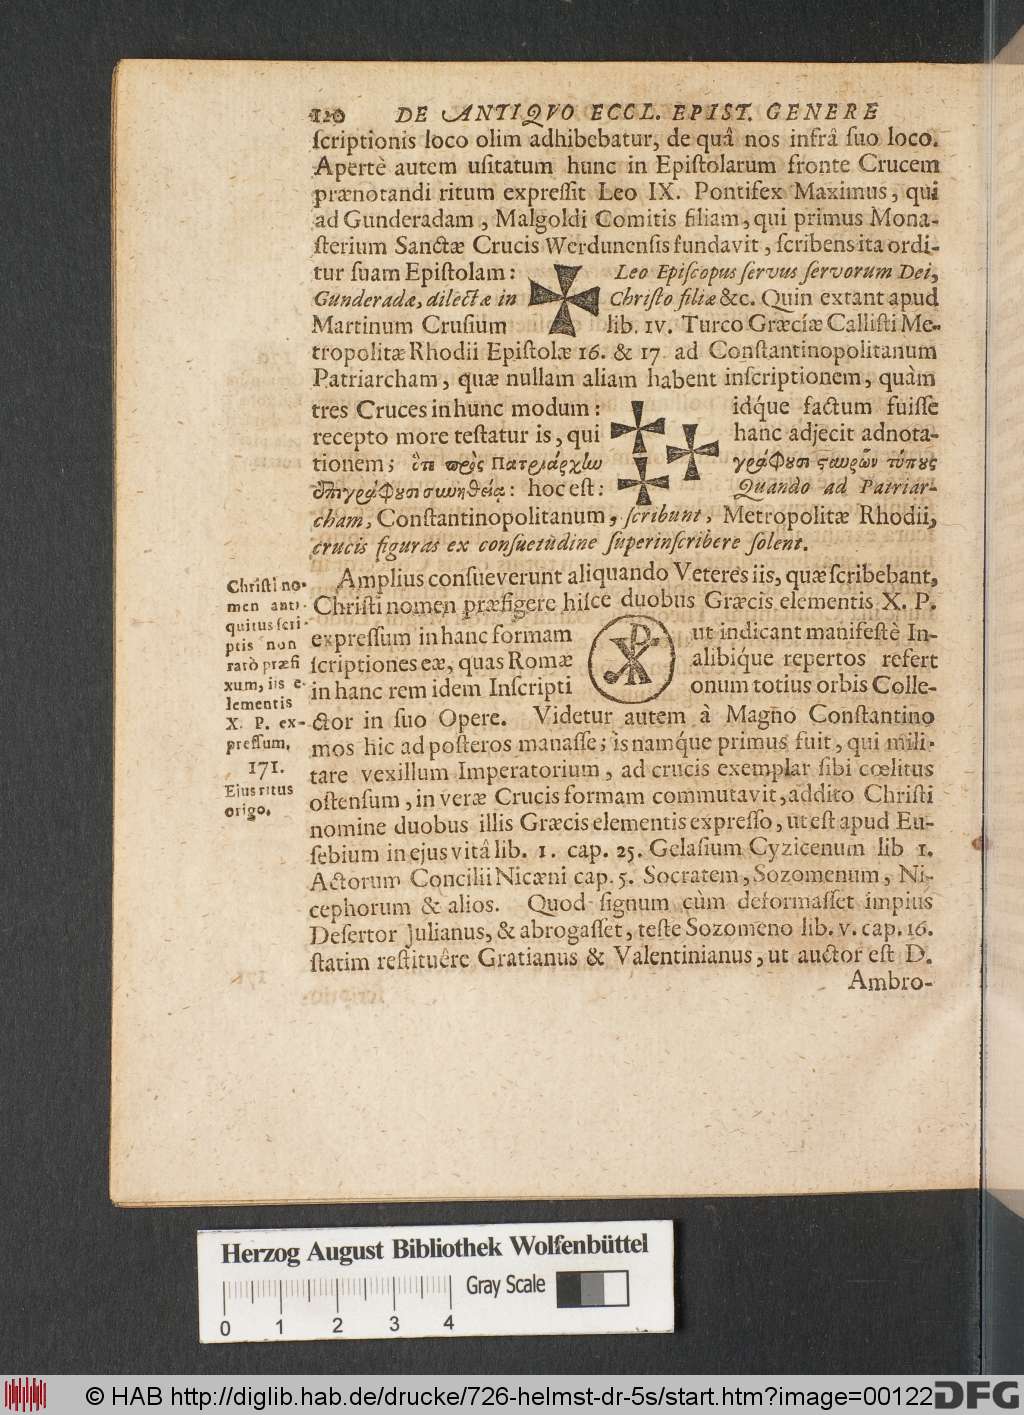 120 DE ANTIQVO ECCL. EPIST. GENERE
ſcriptionis loco olim adhibebatur, de quâ nos infrâ ſuo loco.
Apertè autem uſitatum hunc in Epiſtolarum fronte Crucem
prænotandi ritum expreſſit Leo IX. Pontifex Maximus, qui
ad Gunderadam, Malgoldi Comitis filiam, qui primus Mona-
ſterium Sanctæ Crucis Werdunenſis fundavit, ſcribens ita ordi-
tur ſuam Epiſtolam: Leo Epiſcopus ſervus ſervorum Dei,
Gunderadæ, dilectæ in Chriſto filiæ &c. Quin extant apud
Martinum Cruſium lib. IV. Turco Græciæ Calliſti Me-
tropolitæ Rhodii Epiſtolæ 16. & 17 ad Conſtantinopolitanum
Patriarcham, quæ nullam aliam habent inſcriptionem, quàm
tres Cruces in hunc modum: idq́ue factum fuiſſe
recepto more teſtatur is, qui hanc adjecit adnota-
tionem; ὅτι πρὸς Πατριάρχην γράφουσι σταυρῶν τύπους
ἐπιγράφουσι συνηθείᾳ: hoc eſt: Quando ad Patriar-
cham, Conſtantinopolitanum, ſcribunt, Metropolitæ Rhodii,
crucis figuras ex conſuetudine ſuperinſcribere ſolent.
Amplius conſueverunt aliquando Veteres iis, quæ ſcribebant,
Chriſti nomen præfigere hiſce duobus Græcis elementis X. P.
expreſſum in hanc formam ut indicant manifeſtè In-
ſcriptiones eæ, quas Romæ alibiq́ue repertos refert
in hanc rem idem Inſcripti onum totius orbis Colle-
ctor in ſuo Opere. Videtur autem à Magno Conſtantino
mos hic ad poſteros manaſſe; is namq́ue primus fuit, qui mili-
tare vexillum Imperatorium, ad crucis exemplar ſibi cœlitus
oſtenſum, in veræ Crucis formam commutavit, addito Chriſti
nomine duobus illis Græcis elementis expreſſo, ut eſt apud Eu-
ſebium in ejus vitâ lib. 1. cap. 25. Gelaſium Cyzicenum lib 1.
Actorum Concilii Nicæni cap. 5. Socratem, Sozomenum, Ni-
cephorum & alios. Quod ſignum cùm deformaſſet impius
Deſertor Julianus, & abrogaſſet, teſte Sozomeno lib. v. cap. 16.
ſtatim reſtituêre Gratianus & Valentinianus, ut auctor eſt D.
Ambro-
Chriſti no-
men anti-
quitus ſcri-
ptis non
rarò præfi
xum, iis e-
lementis
X. P. ex-
preſſum.
171.
Ejus ritus
origo.
Herzog August Bibliothek Wolfenbüttel
Gray Scale
0 1 2 3 4
© HAB http://diglib.hab.de/drucke/726-helmst-dr-5s/start.htm?image=00122
DFG